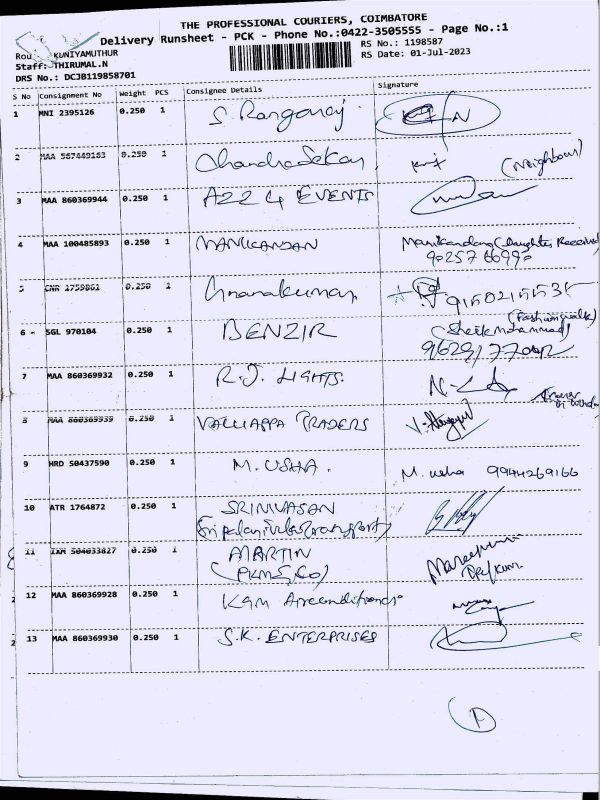 THE PROFESSIONAL COURIERS, COIMBATORE
Delivery Runsheet - PCK - Phone No.:0422-3505555 - Page No.:1
KUNIYAMUTHUR RS No.: 1198587
Staff: THIRUMAL.N RS Date: 01-Jul-2023
DRS No.: DCJB119858701
S No Consignment No Weight PCS Consignee Details Signature
1 MNI 2395126 0.250 1 S. Ranganaj
2 MAA 567449163 0.250 1 ChandraSekar (Neighbour)
3 MAA 860369944 0.250 1 A2Z 4 EVENTS
4 MAA 100485893 0.250 1 MANIKANDAN Manikandan (Daughter Received)
90257 66990
5 CNR 1759861 0.250 1 Gnanakumar 9150215535
6 - SGL 970104 0.250 1 BENZIR
(Sheik mohammad)
7 MAA 860369932 0.250 1 R.J. LIGHTS.
8 MAA 860369939 0.250 1 VALLIAPPA TRADERS
9 HRD 50437590 0.250 1 M. USHA. M. usha 9944269166
10 ATR 1764872 0.250 1 SRINIVASAN
11 IXM 504033827 0.250 1 MARTIN
(PKMS, CO)
12 MAA 860369928 0.250 1 KGM
13 MAA 860369930 0.250 1 S.K. ENTERPRISES